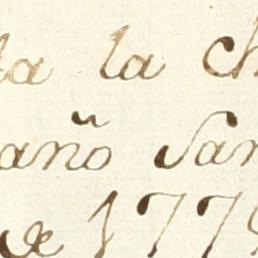 la ch
año San
de 177